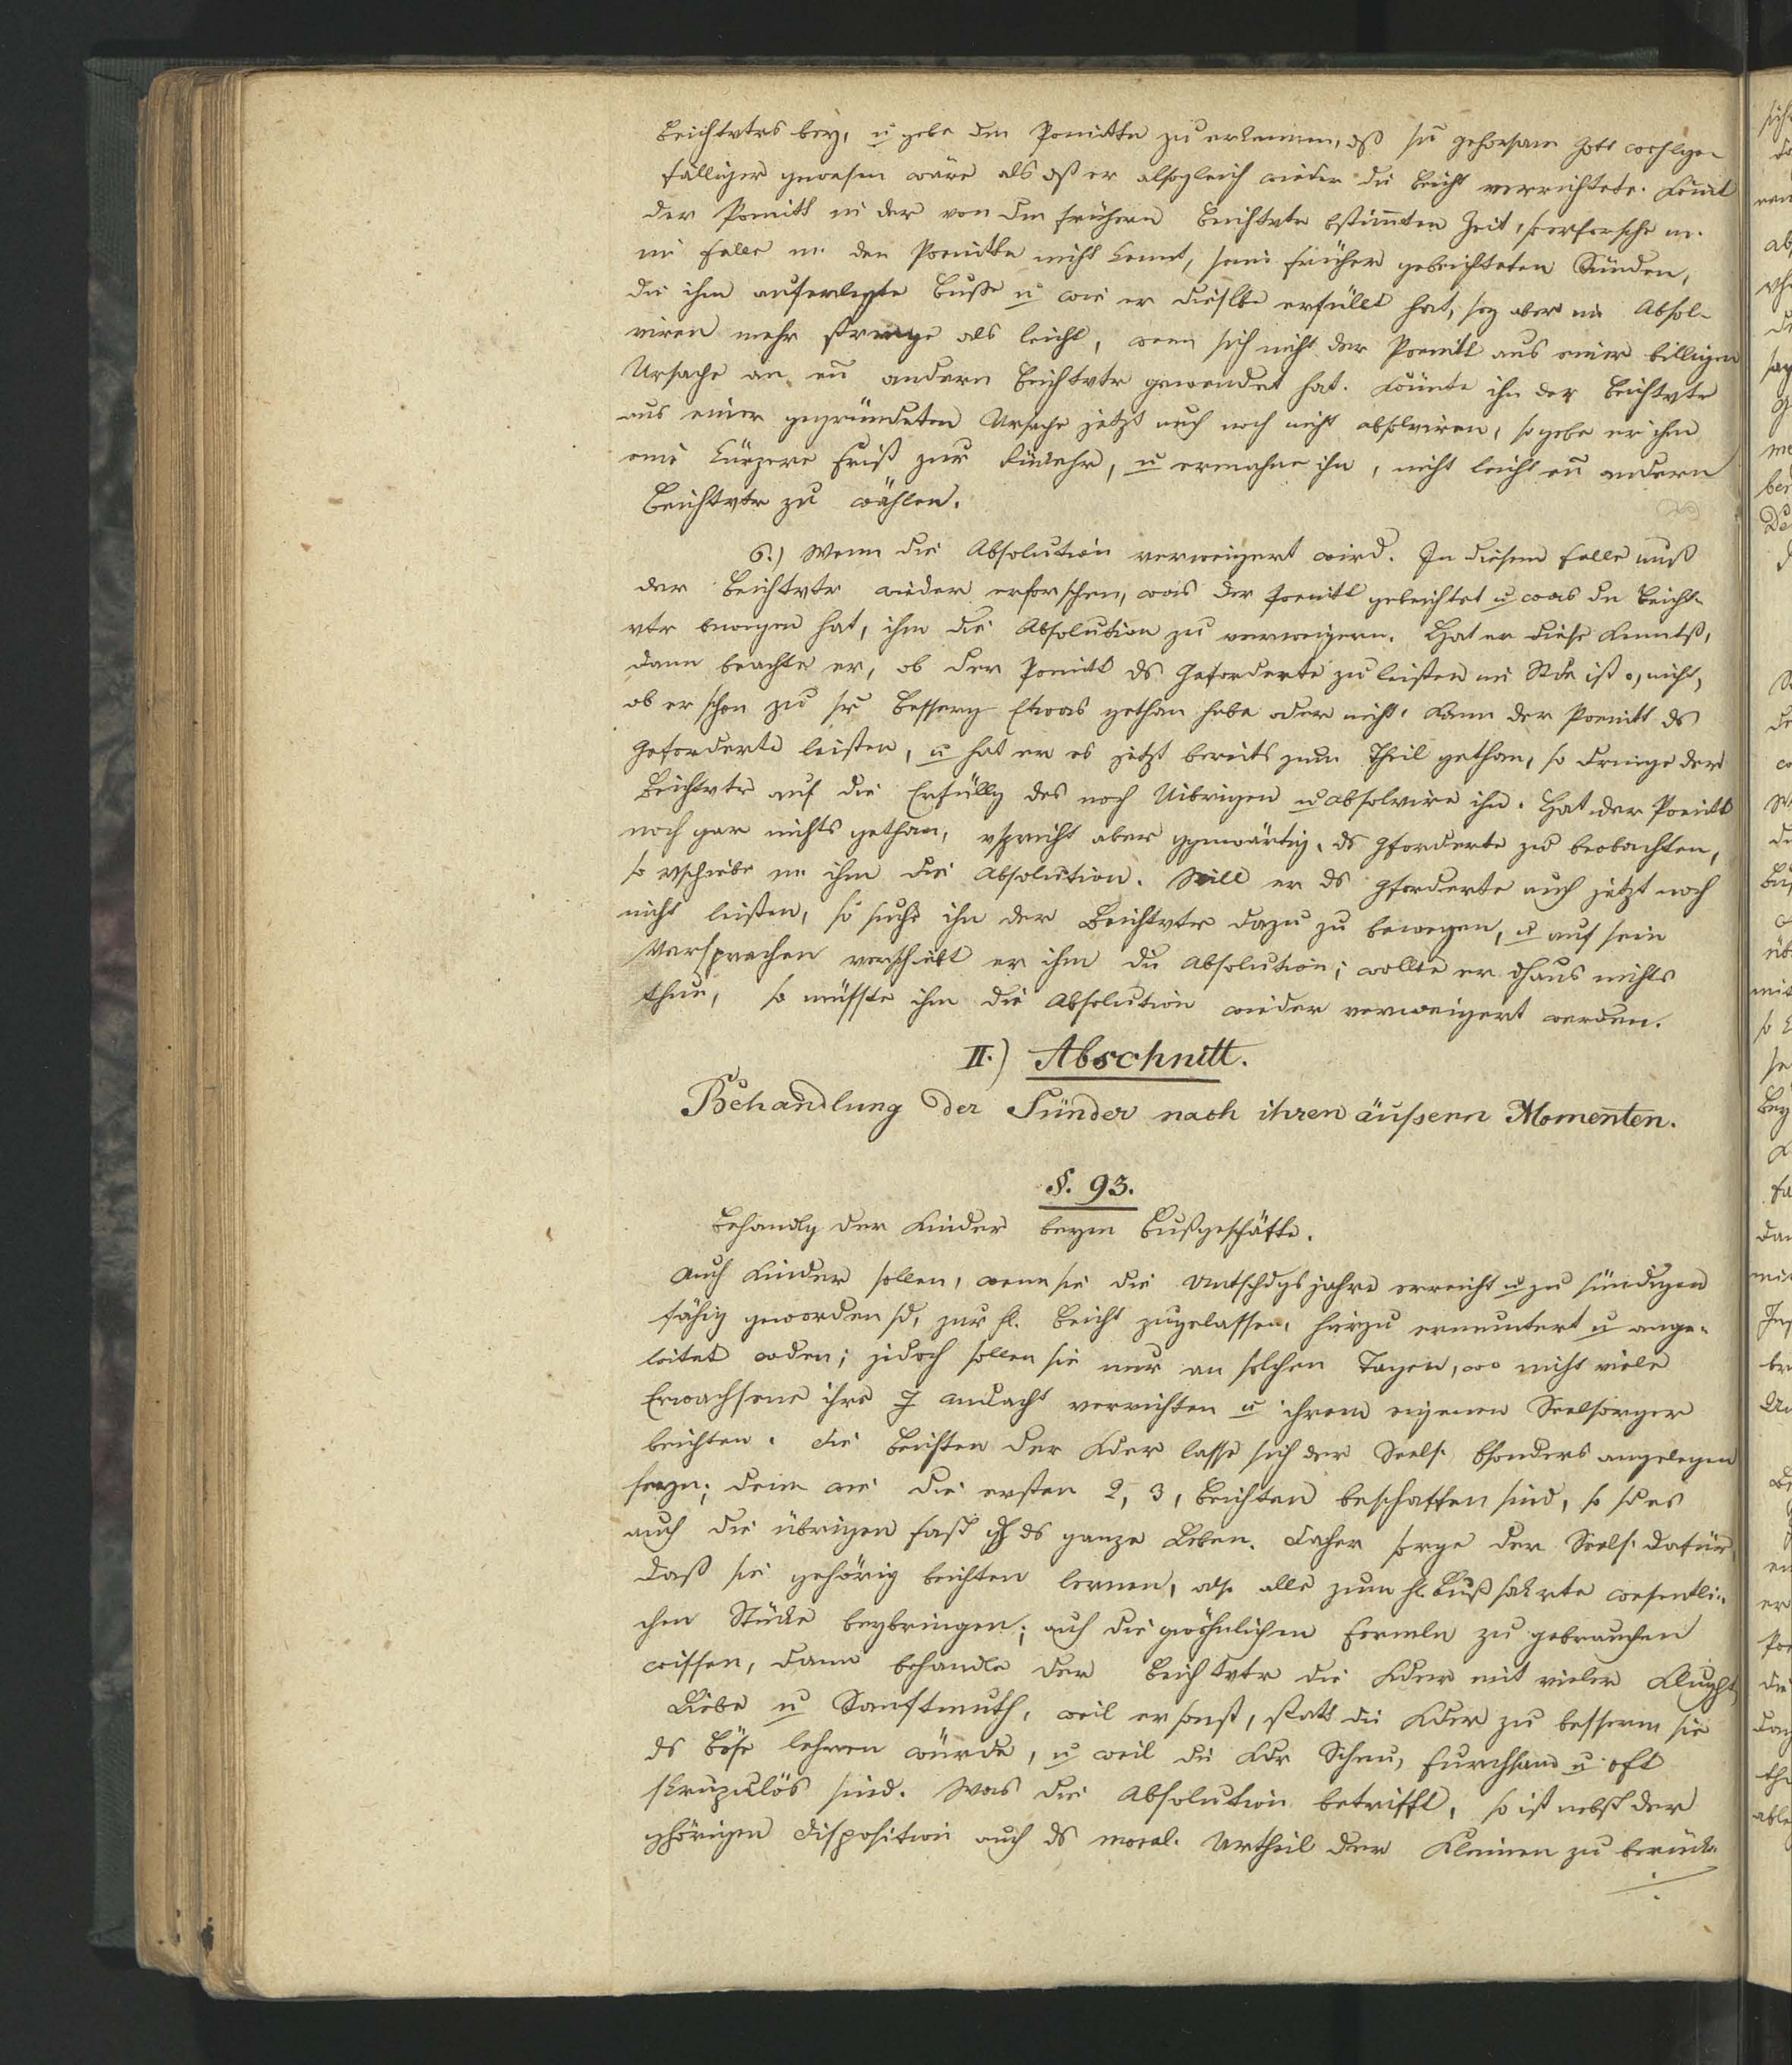 Beichtvtrs bey, u gebe dem Ponittn zu erkennen, dß sn Gehorsam Gott wohlge-
fälliger gewesen wäre als dß er alsogleich wieder die Beicht verrichtete. Komt
der Ponitt in der von dm frühern Beichtvtr bstimten Zeit, so erforsche m.
im Falle m. den Poenitten nicht kennt, seine früher gebeichteten Sünden,
die ihm auferlegte Busse u wie er dieselbe erfüllt hat, sey aber im Absol-
viren mehr strenge als leicht, wenn sich nicht der Poenitt aus einer billigen
Ursache an ein andern Beichtvtr gewendet hat. Könnte ihn der Beichtvtr
aus einer gegründeten Ursache jetzt auch noch nicht absolviren, so gebe er ihm
eine kürzere Frist zur , u ermahne ihn, nicht leicht ein andern
Beichtvtr zu wählen.
6.) Wenn die Absolution verweigert wird. In diesem Falle muß
der Beichtvtr wieder erforschen, was der Poenitt gebeichtet u was dn Beicht-
vtr bewogen hat, ihm die Absolution zu verweigern. Hat er diese Kenntß,
dann beachte er, ob der Ponitt ds Geforderte zu leisten im Stde ist o. nicht,
ob er schon zu sr Besserg Etwas gethan habe oder nicht. Kann der Poenitt ds
Geforderte leisten, u hat er es jetzt bereits zum Theil gethan, so dringe der
Beichtvtr auf die Erfüllg des noch Uibrigen u absolvire ihn. Hat der Poenitt
noch gar nichts gethan, vspricht aber ggenwärtig, ds Gforderte zu beobachten,
so vschiebe m. ihm die Absolution. Will er ds Gforderte auch jetzt noch
nicht leisten, so suche ihn der Beichtvtr dazu zu bewegen, u auf sein
Versprechen verschiebt er ihm die Absolution; wollte er dhaus nichts
thun, so müsste ihm die Absolution wieder verweigert werden.
II.) Abschnitt.
Behandlung der Sünder nach ihren äußern Momenten.
§. 93.
Behandlg der Kinder beym Bußgeschäfte.
Auch Kinder sollen, wenn sie die Untschdgsjahre erreicht u zu sündigen
fähig geworden sd, zur hl. Beicht zugelassen, hierzu ermuntert u ange-
leitet wden; jedoch sollen sie nur an solchen Tagen, wo nicht viele
Erwachsene ihre Andacht verrichten u ihrem eigenen Seelsorger
beichten. Die Beichten der Kder lasse sich der Seels. bsonders angelegen
seyn; denn wie die ersten 2, 3, Beichten beschaffen sind, so sd es
auch die übrigen fast dh ds ganze Leben. Daher sorge der Seels. dafür,
daß sie gehörig beichten lernen, also alle zum hl. Bußsakrte wesentli-
chen Stücke beybringen; auch die gwöhnlichen Formeln zu gebrauchen
wissen, dann behandle der Beichtvtr die Kder mit vieler Klught
Liebe u Sanftmuth, weil er sonst, statt die Kder zu bessern sie
ds Böse lehren würde, u weil die Kdr Scheu, furchtsam u oft
skrupulös sind. Was die Absolution betrifft, so ist nebst der
ghörigen Disposition auch ds moral. Urtheil der Kleinen zu berück-